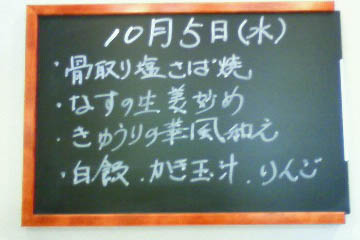 10月5日(水)
・骨取り塩さば焼
・なすの生姜炒め
・きゅうりの華風和え
・白飯.かき玉汁.りんご